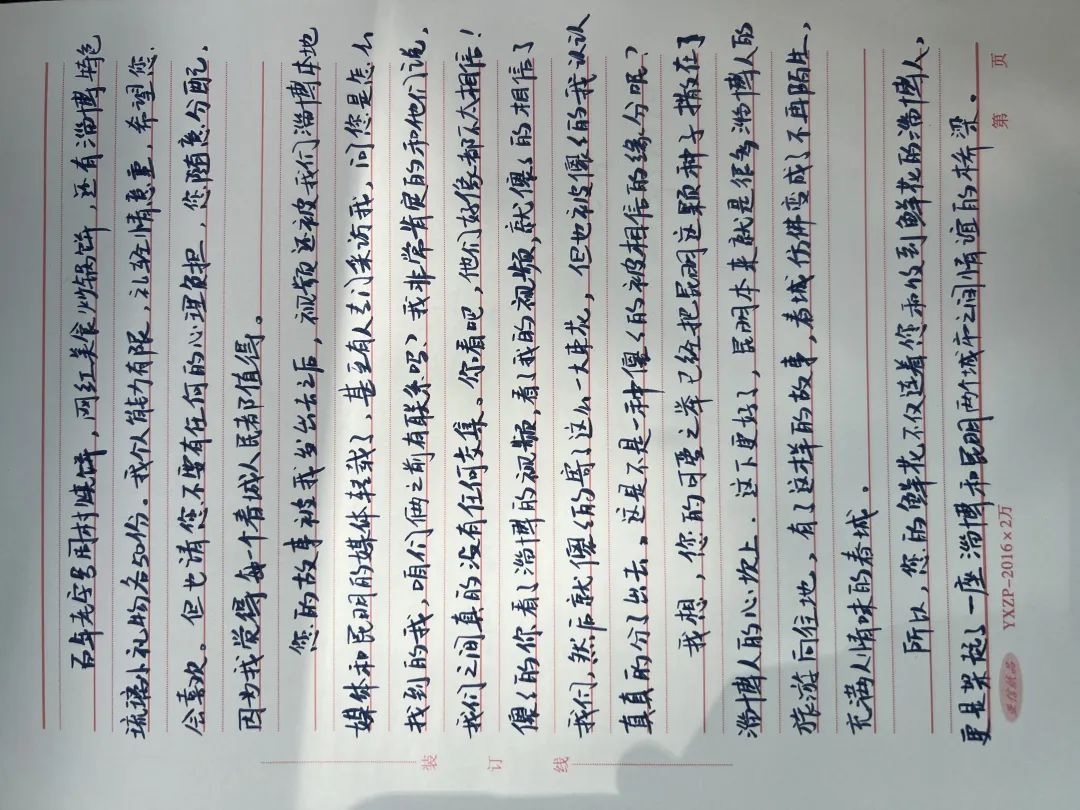 百年老字号周村烧饼，网红美食炒锅饼，还有淄博特色
琉璃小礼物各50份。我个人能力有限，礼轻情意重，希望您
会喜欢。但也请您不要有任何的心理负担，您随意分配，
因为我觉得每一个春城人民都值得。
您的故事被我发出去之后，视频还被我们淄博本地
媒体和昆明的媒体转载了，甚至有人专门采访我，问您是怎么
找到的我，咱们俩之前有联系吗？我非常肯定的和他们说，
我们之间真的没有任何交集。你看吧，他们好像都不太相信！
傻傻的你看了淄博的视频，看了我的视频，就傻傻的相信了
我们，然后就傻傻的寄了这么一大束花，但也被傻傻的我认认
真真的分了出去。这是不是一种傻傻的被相信的缘分呢？
我想，您的可爱之举已经把昆明这颗种子撒在了
淄博人的心坎上。这下更好了，昆明本来就是很多淄博人的
旅游向往地，有了这样的故事，春城仿佛变成了不再陌生，
充满人情味的春城。
所以，您的鲜花不仅连着您和收到鲜花的淄博人，
更是架起了一座淄博和昆明两个城市之间情谊的桥梁。
装 订 线
YXZP-2016×2万
第 页